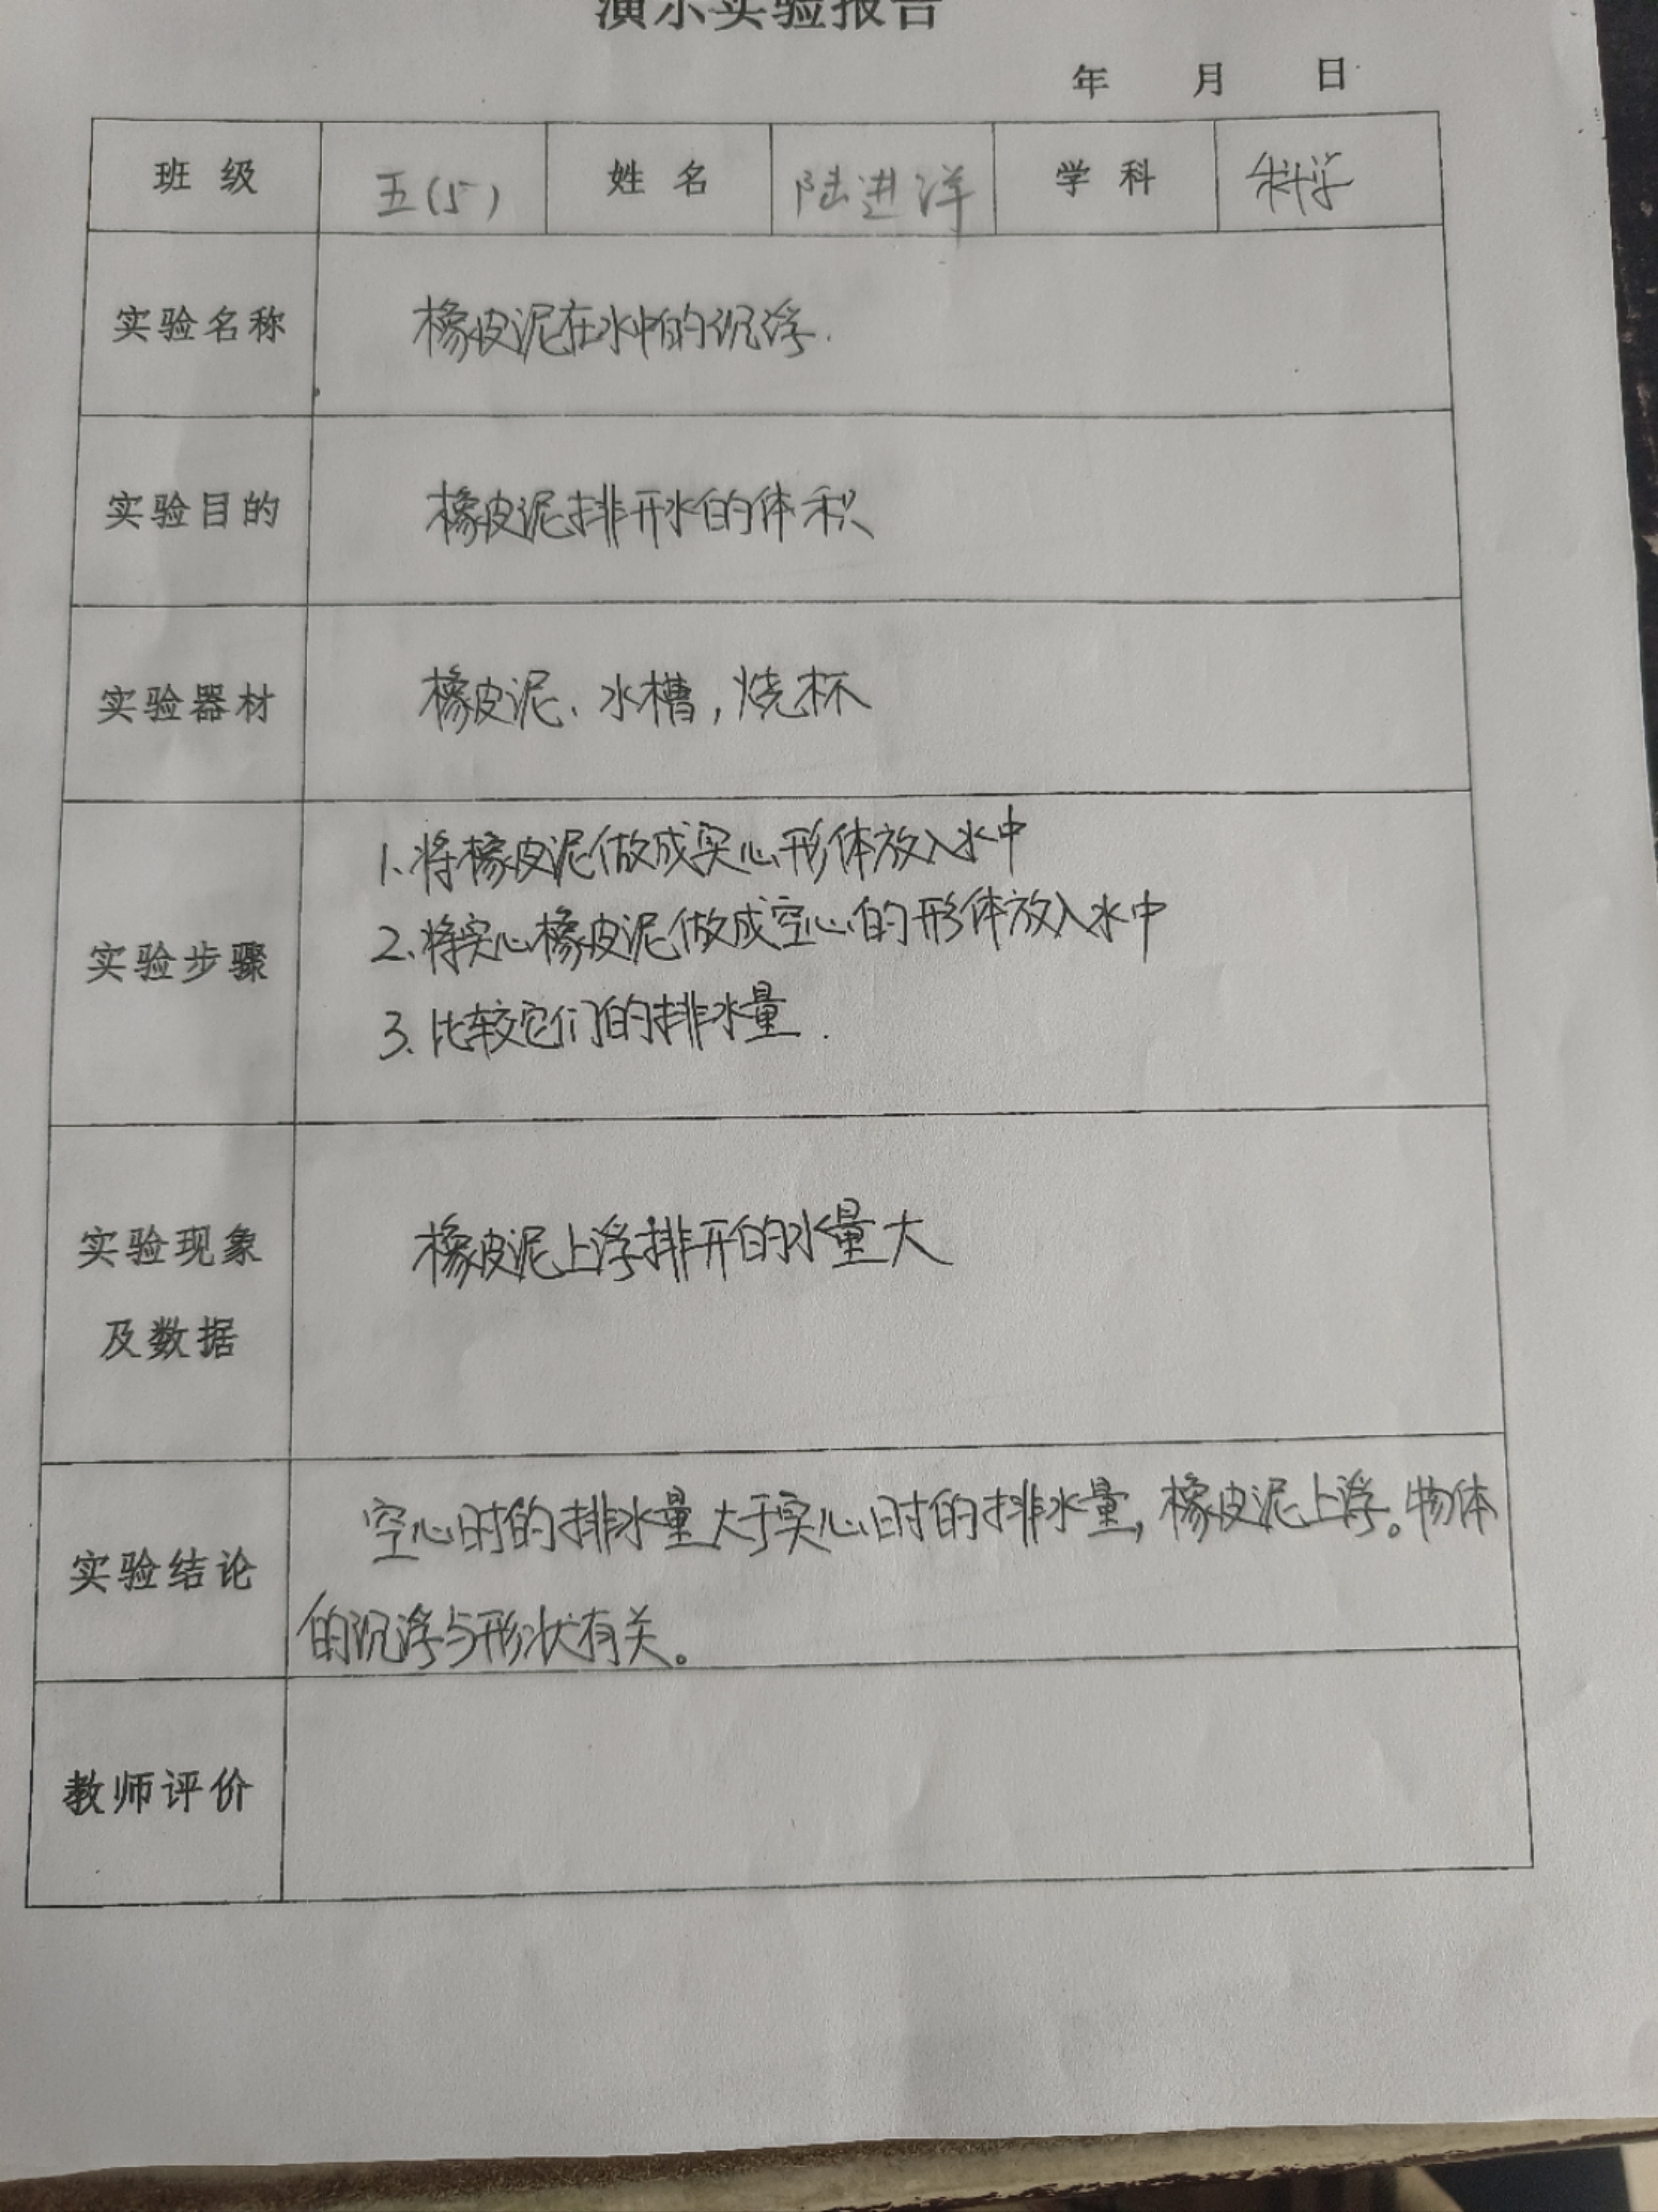 演示实验报告
年 月 日
班级 五(5) 姓名 陆进洋 学科 科学
实验名称 橡皮泥在水中的沉浮.
实验目的 橡皮泥排开水的体积
实验器材 橡皮泥、水槽,烧杯
1.将橡皮泥做成实心形体放入水中
2.将实心橡皮泥做成空心的形体放入水中
实验步骤
3.比较它们的排水量.
实验现象 橡皮泥上浮排开的水量大
及数据
空心时的排水量大于实心时的排水量,橡皮泥上浮。物体
实验结论
的沉浮与形状有关。
教师评价